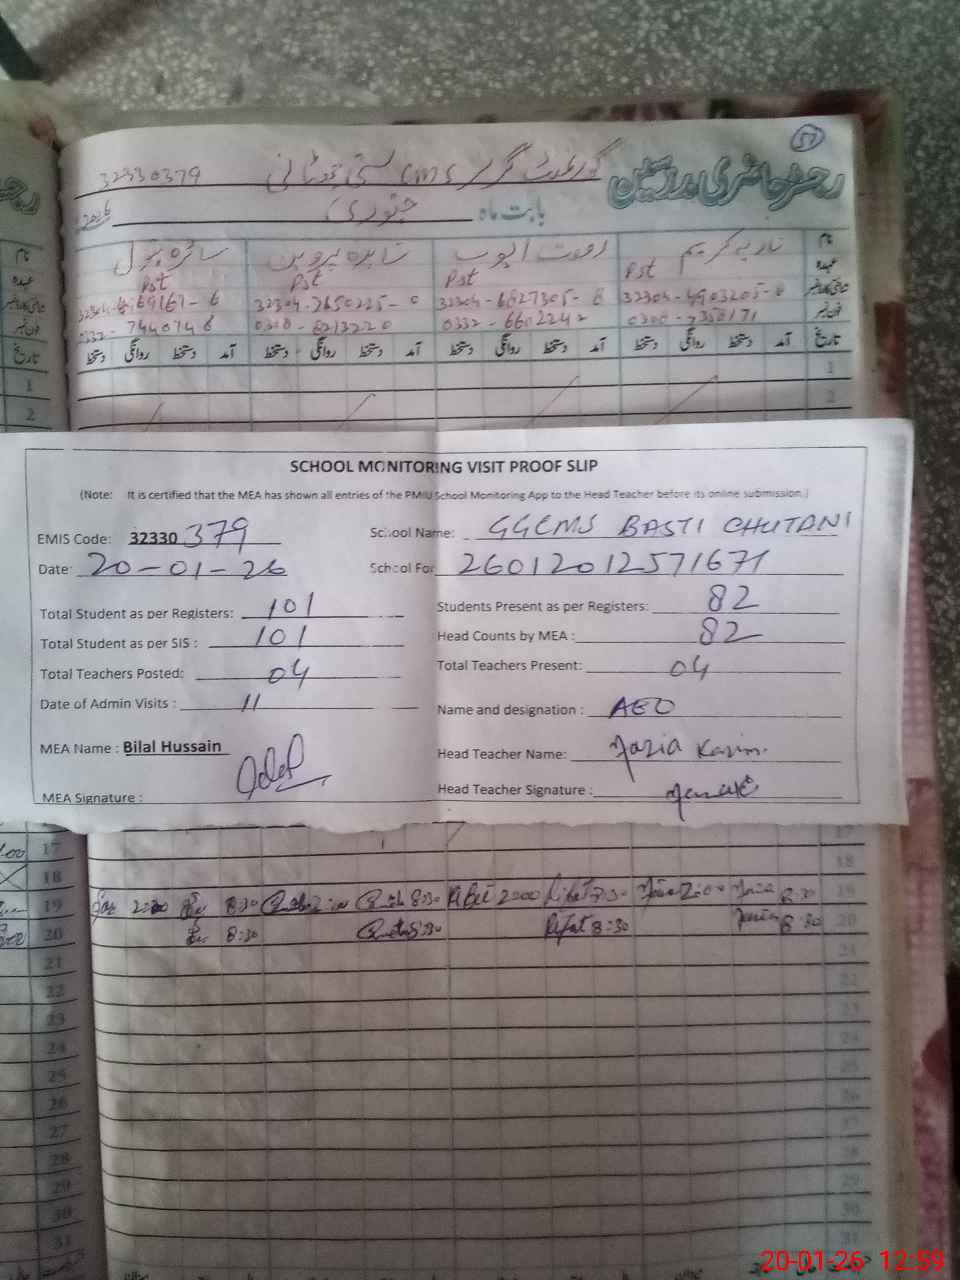 51
رجسٹر حاضری مدرسین
گورنمنٹ گرلز CMS بستی چوٹانی 32330379
بابت ماہ جنوری
نام
عہدہ Pst Pst Pst Pst
32304-4903205-0 32304-6827305-8 32304-2650225-0
0332-6602242 0308-8213220 0332-7440746
تاریخ آمد دستخط روانگی دستخط آمد دستخط روانگی دستخط آمد دستخط روانگی دستخط آمد دستخط روانگی دستخط
1 1
2 2
SCHOOL MONITORING VISIT PROOF SLIP
(Note: It is certified that the MEA has shown all entries of the PMIU School Monitoring App to the Head Teacher before its online submission.)
EMIS Code: 32330 379 School Name: GGCMS BASTI CHUTANI
Date: 20-01-26 School For 26012012571671
Total Student as per Registers: 101 Students Present as per Registers: 82
Total Student as per SIS : 101 Head Counts by MEA : 82
Total Teachers Posted: 04 Total Teachers Present: 04
Date of Admin Visits : 11 Name and designation : AEO
MEA Name : Bilal Hussain Head Teacher Name: Nazia Karim
MEA Signature : Head Teacher Signature :
17 17
18 18
19 2:00 8:30 2:00 8:30 2:00 8:30 19
20 8:30 8:30 Rifat 8:30 8:30 20
21 21
22 22
23 23
24 24
25 25
26 26
27 27
28 28
29 29
30 30
31 31
20-01-26 12:59